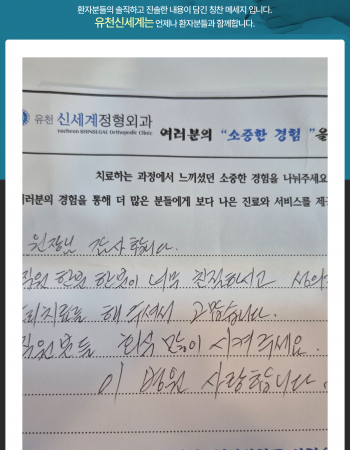 환자분들의 솔직하고 진솔한 내용이 담긴 칭찬 메세지 입니다.
유천신세계는 언제나 환자분들과 함께합니다.
유천 신세계정형외과
yucheon SHINSEGAE Orthopedic Clinic
여러분의 "소중한 경험 "을
치료하는 과정에서 느끼셨던 소중한 경험을 나눠주세요
러분의 경험을 통해 더 많은 분들에게 보다 나은 진료와 서비스를 제
원장님 감사합니다.
직원 한분 한분이 너무 친절하시고
해 주셔서 고맙습니다.
직원분들 회식 많이 시켜주세요.
이 병원 사랑합니다.